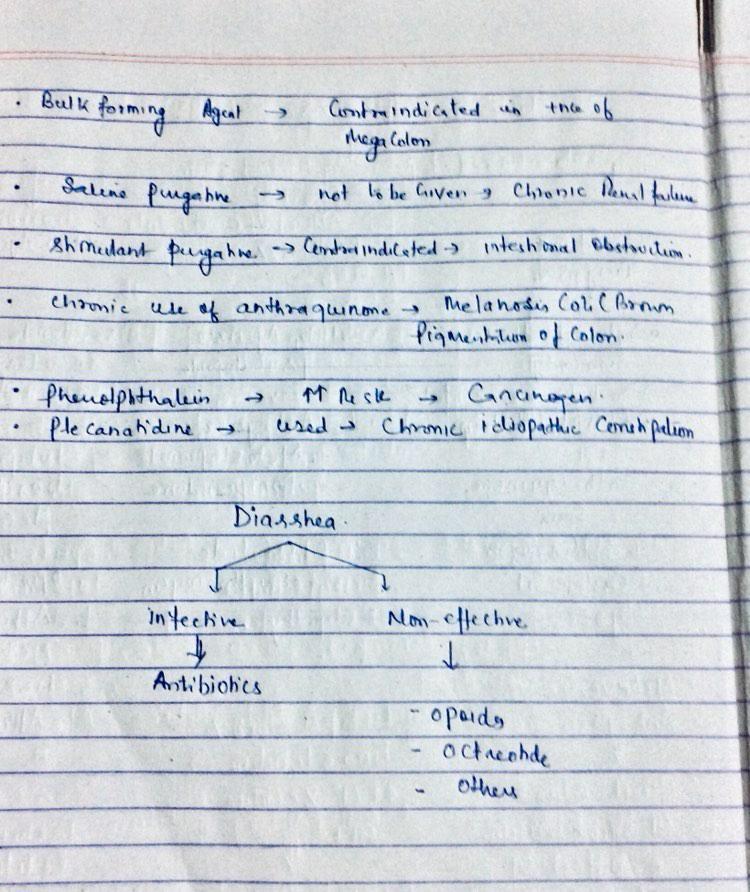 • Bulk forming Agent → Contraindicated in the of
Mega Colon
• Saline Purgative → not to be Given → Chronic Renal failure
• Stimulant purgative → Contraindicated → intestional Obstruction.
• Chronic use of anthraquinone → Melanosis Coli (Brown
Pigmentation of Colon.
• Phenolphthalein → ↑↑ Risk → Carcinogen.
• Plecanatidine → used → Chronic idiopathic Constipation
Diarrhea.
infective Non-effective
Antibiotics
- Opoids
- Octreotide
- Others